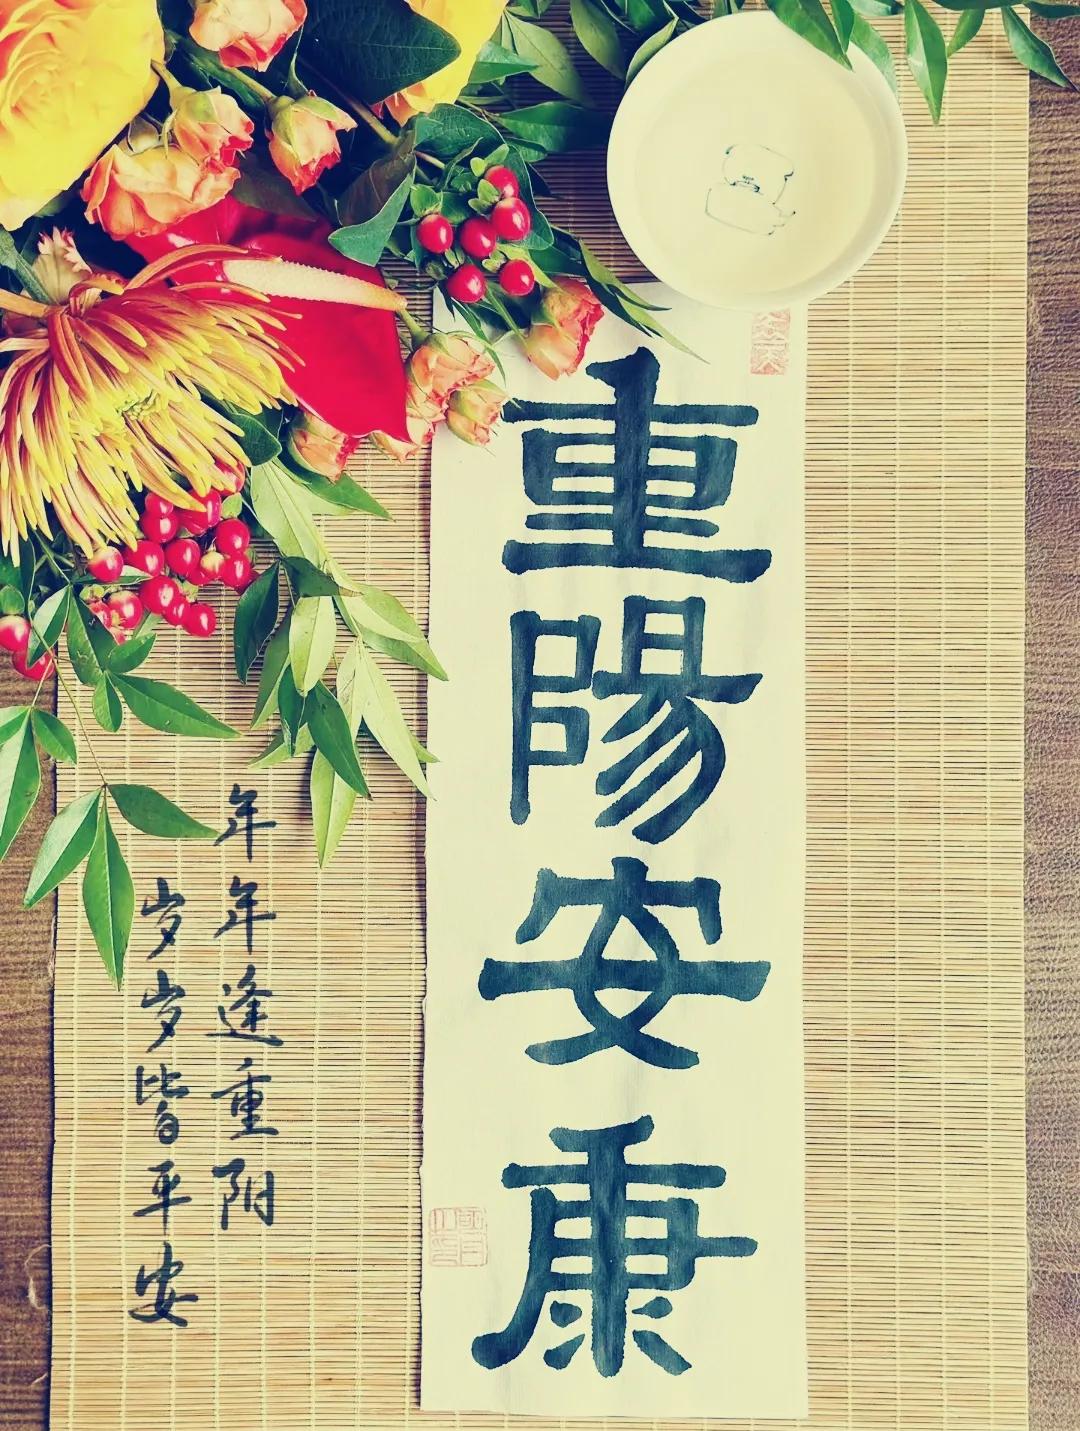 重陽安康
年年逢重阳
岁岁皆平安